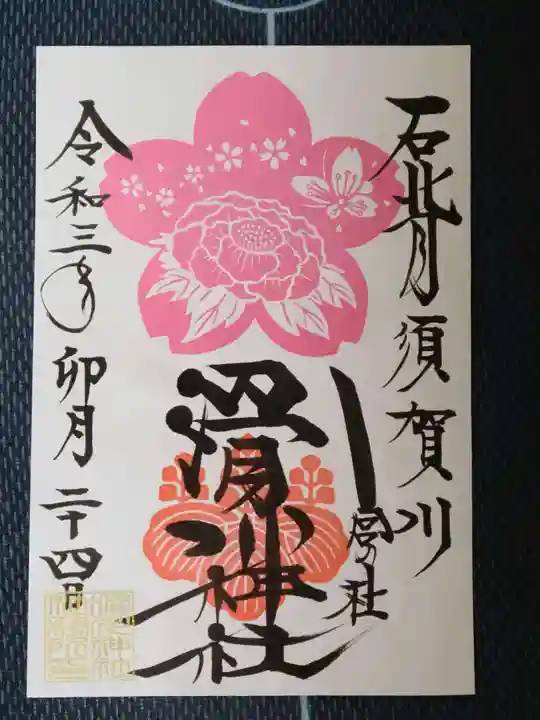 石背 須賀川
滑川神社
令和三年 卯月 二十四日